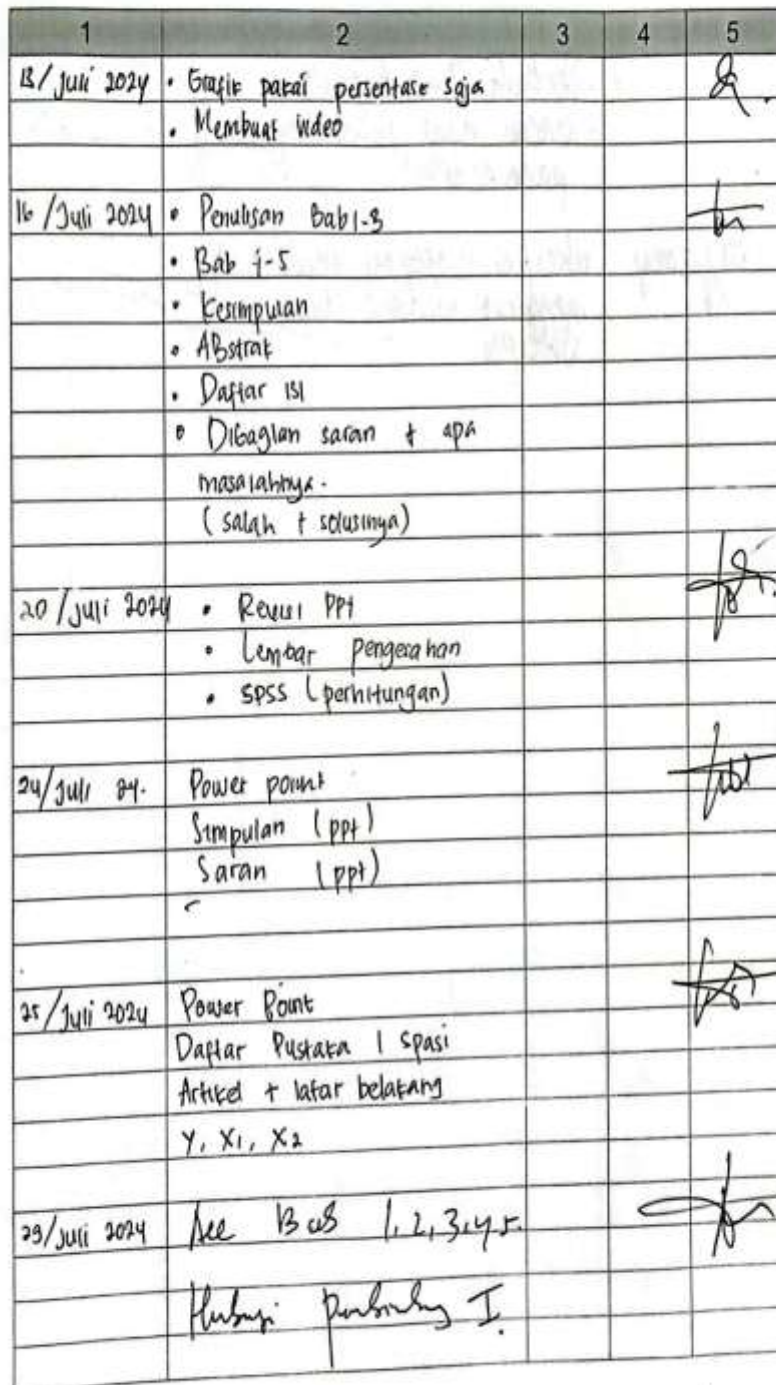 1 2 3 4 5
13/Juli 2024 • Grafik pakai persentase saja
• Membuat video
16/Juli 2024 • Penulisan Bab 1-3
• Bab 4-5
• Kesimpulan
• ABstrak
• Daftar ISI
• Dibagian saran + apa
masalahnya.
(salah + solusinya)
20/Juli 2024 • Revisi PPt
• Lembar pengesahan
• SPSS (perhitungan)
24/Juli 24. Power point
Simpulan (ppt)
Saran (ppt)
25/Juli 2024 Power Point
Daftar Pustaka 1 spasi
Artikel + latar belakang
Y, X1, X2
29/Juli 2024 Acc Bab 1, 2, 3, 4, 5.
Hubungi pembimbing I.